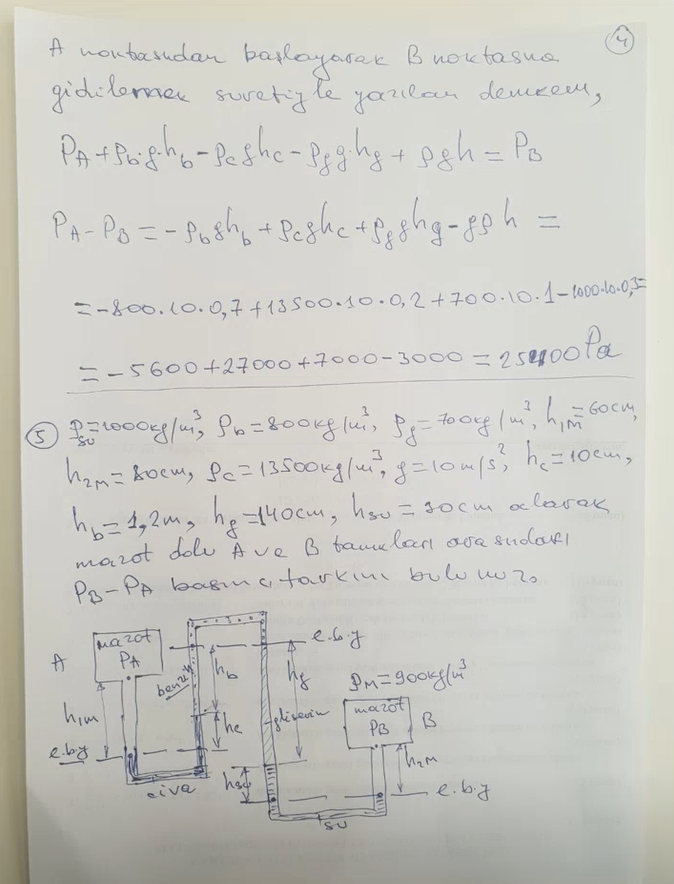 4
A noktasından başlayarak B noktasına
gidilemek suretiyle yazılan denklem,
P_A + ρ_b·g·h_b - ρ_c g h_c - ρ_g g·h_g + ρ g h = P_B
P_A - P_B = -ρ_b g h_b + ρ_c g h_c + ρ_g g h_g - g ρ h =
= -800.10.0,7 + 13500.10.0,2 + 700.10.1 - 1000.10.0,3 =
= -5600 + 27000 + 7000 - 3000 = 25400 Pa
5 ρ_su = 1000 kg/m³, ρ_b = 800 kg/m³, ρ_g = 700 kg/m³, h_1M = 60 cm,
h_2M = 80 cm, ρ_c = 13500 kg/m³, g = 10 m/s², h_c = 10 cm,
h_b = 1,2 m, h_g = 140 cm, h_su = 30 cm alarak
mazot dolu A ve B tankları arasındaki
P_B - P_A basınç farkını bulunuz.
A
mazot
P_A
h_1M
e.b.y
civa
benzin
h_b
h_c
h_g
gliserin
h_su
su
e.b.y
ρ_M = 900 kg/m³
mazot
P_B
B
h_2M
e.b.y